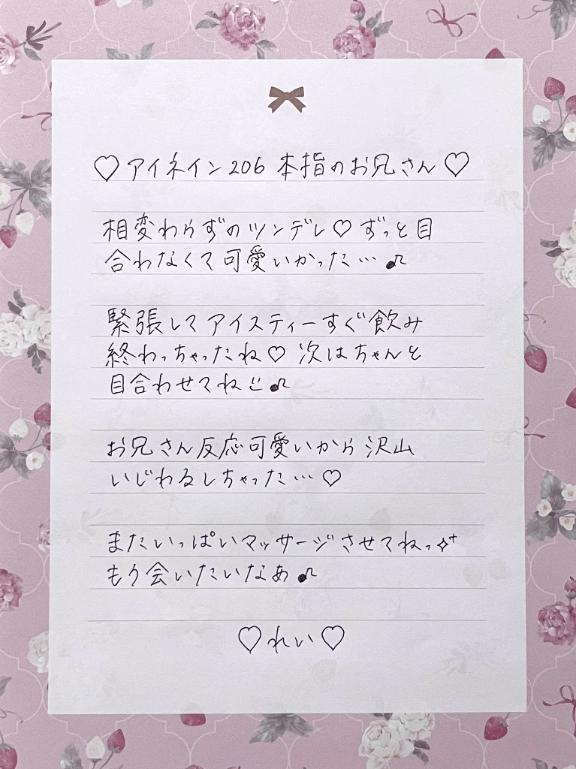 ♡ アイネイン206 本指のお兄さん ♡
相変わらずのツンデレ♡ ずっと目
合わなくて可愛いかった…♪
緊張してアイスティーすぐ飲み
終わっちゃったね♡ 次はちゃんと
目合わせてね☺♪
お兄さん反応可愛いから沢山
いじわるしちゃった…♡
またいっぱいマッサージさせてねっ✧⁺
もう会いたいなあ♪
♡れい♡